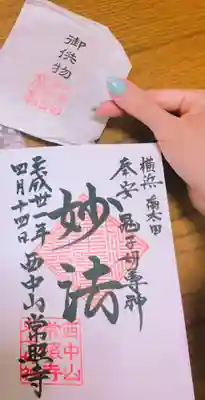 御供物
横浜 南太田
奉安 鬼子母尊神
妙法
平成丗一年
四月十四日
西中山 常照寺